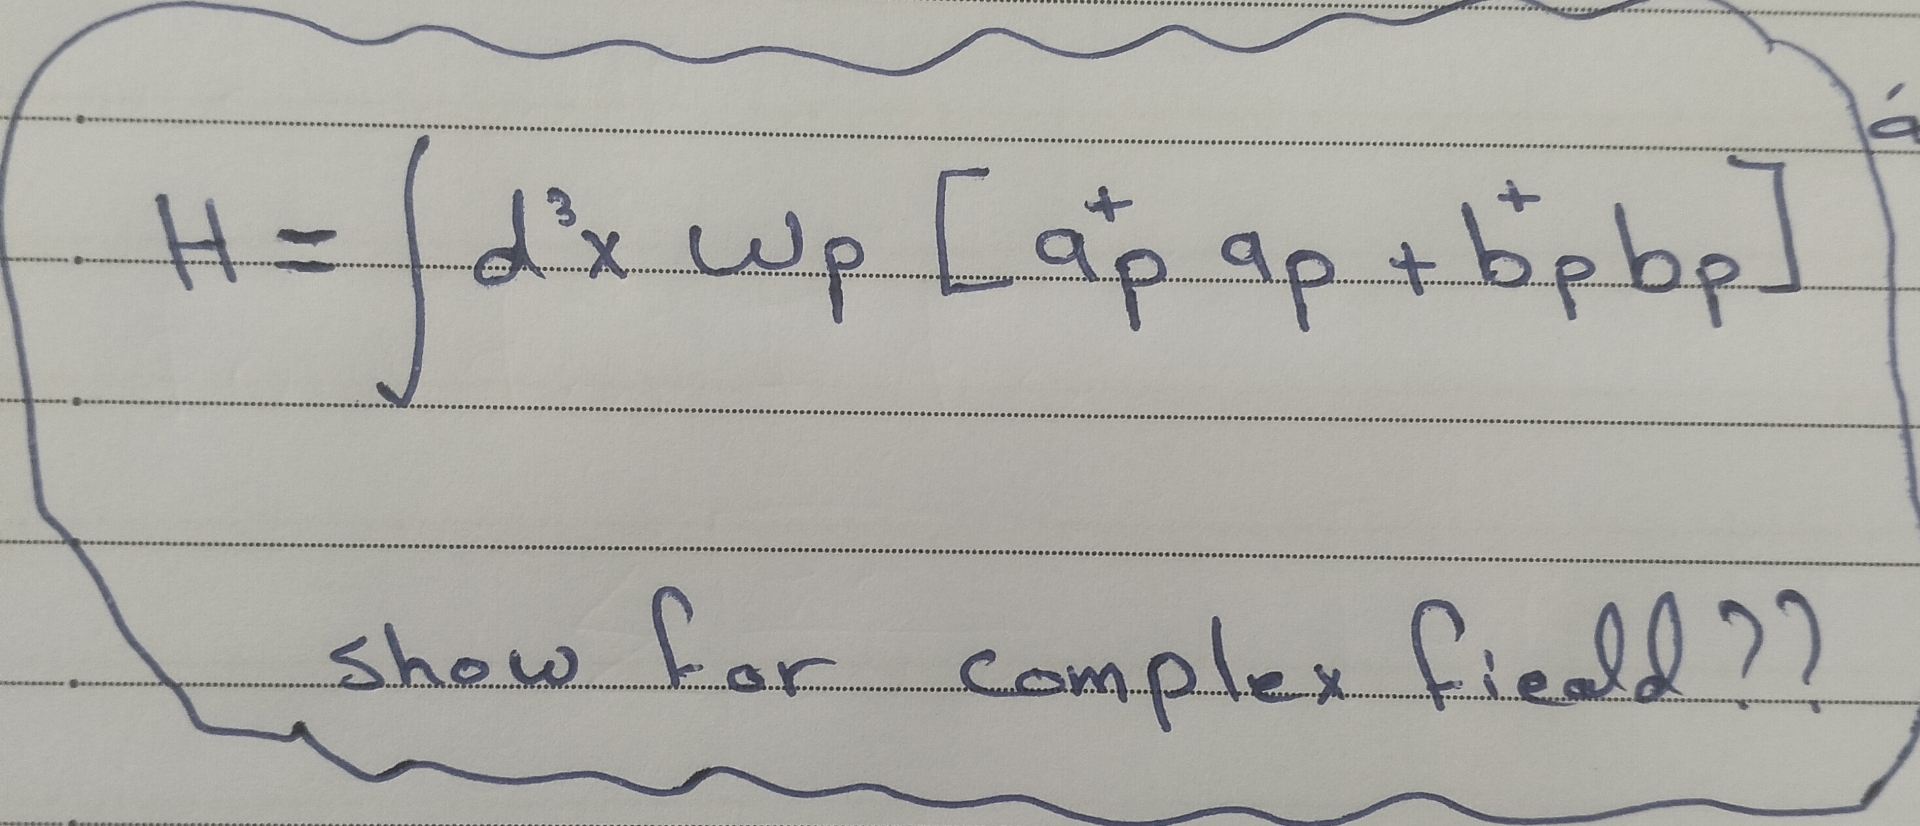 H = ∫ d³x ωp [a⁺p ap + b⁺p bp]
show for complex fieald??